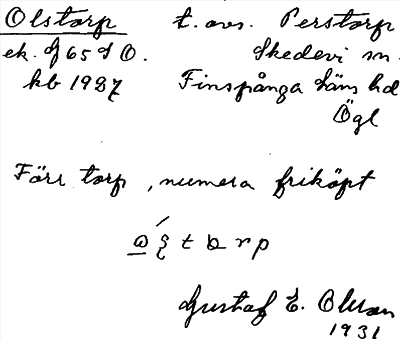 Olstorp t. avs. Perstorp
ek. bl 65 SO. Skedevi sn.
kb 1927 Finspånga läns hd
Ögl
Förr torp, numera friköpt
Gustaf E. Olsson
1931